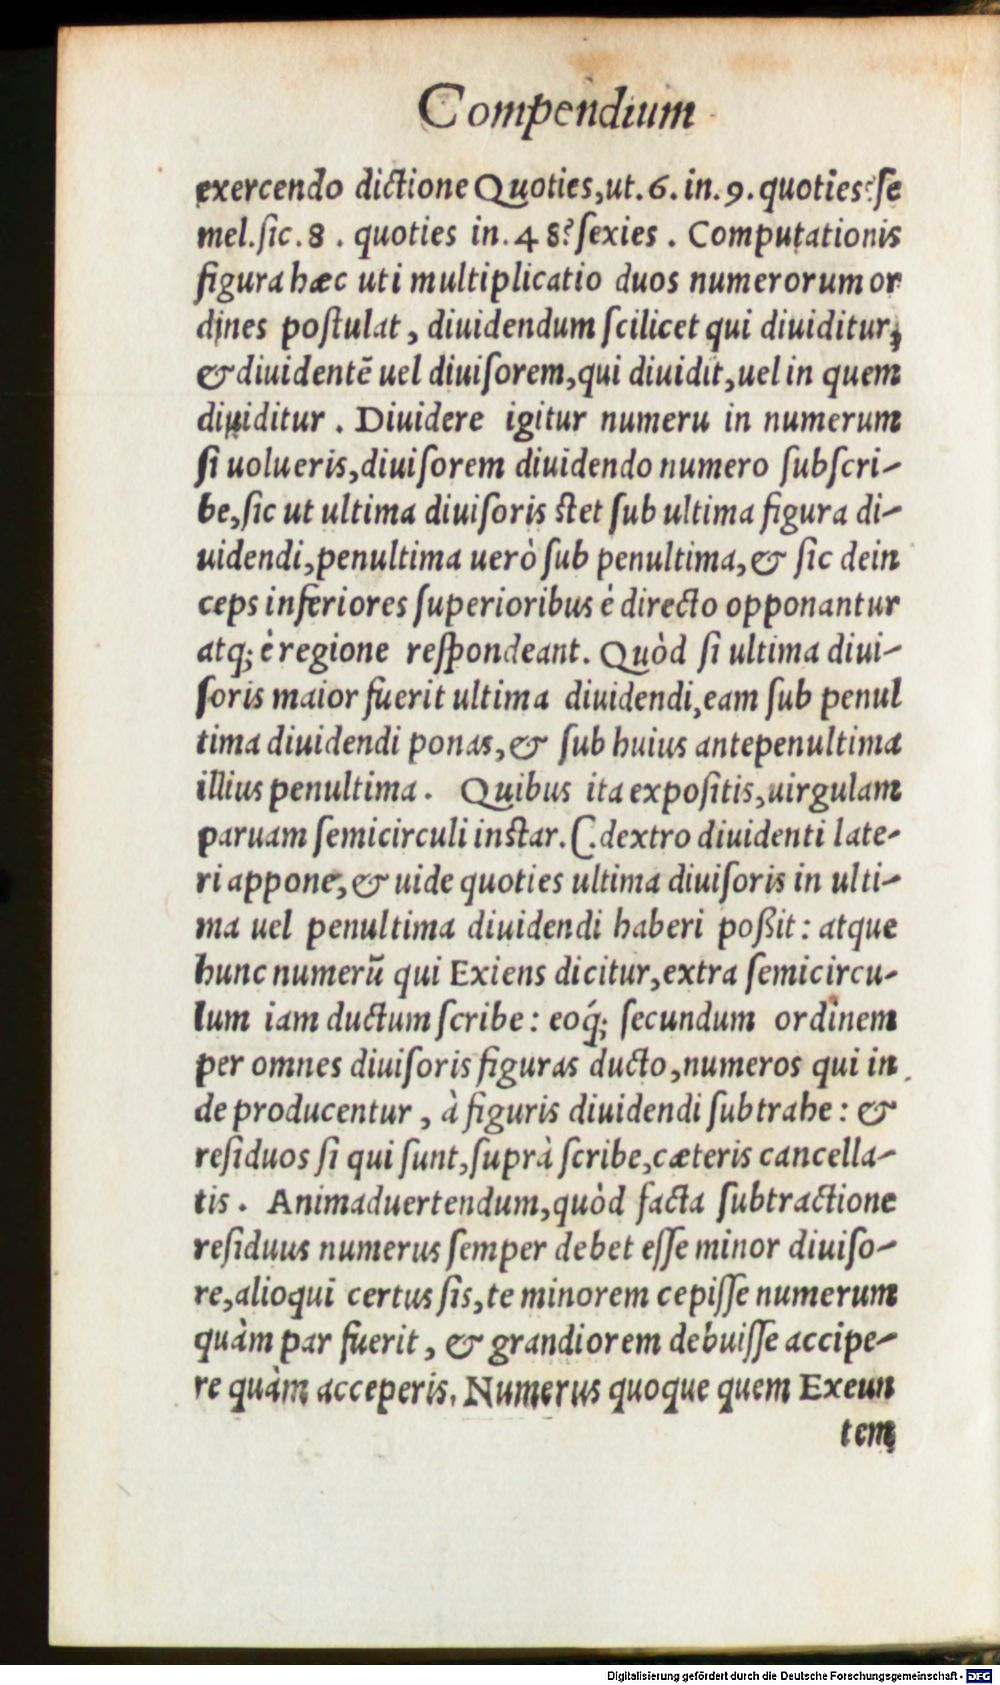 Compendium
exercendo dictione Quoties,ut.6.in.9.quoties?se
mel.sic.8. quoties in.48?sexies. Computationis
figura hæc uti multiplicatio duos numerorum or
dines postulat, diuidendum scilicet qui diuiditur,
& diuidentē uel diuisorem,qui diuidit,uel in quem
diuiditur. Diuidere igitur numeru in numerum
si uolueris,diuisorem diuidendo numero subscri-
be,sic ut ultima diuisoris stet sub ultima figura di-
uidendi,penultima uerò sub penultima,& sic dein
ceps inferiores superioribus è directo opponantur
atq; è regione respondeant. Quòd si ultima diui-
soris maior fuerit ultima diuidendi,eam sub penul
tima diuidendi ponas,& sub huius antepenultima
illius penultima. Quibus ita expositis,uirgulam
paruam semicirculi instar.(.dextro diuidenti late-
ri appone,& uide quoties ultima diuisoris in ulti-
ma uel penultima diuidendi haberi poßit: atque
hunc numerū qui Exiens dicitur,extra semicircu-
lum iam ductum scribe: eoq́; secundum ordinem
per omnes diuisoris figuras ducto,numeros qui in
de producentur, à figuris diuidendi subtrahe: &
residuos si qui sunt,suprà scribe,cæteris cancella-
tis. Animaduertendum,quòd facta subtractione
residuus numerus semper debet esse minor diuiso-
re,alioqui certus sis,te minorem cepisse numerum
quàm par fuerit, & grandiorem debuisse accipe-
re quàm acceperis. Numerus quoque quem Exeun
tem
Digitalisierung gefördert durch die Deutsche Forschungsgemeinschaft - DFG